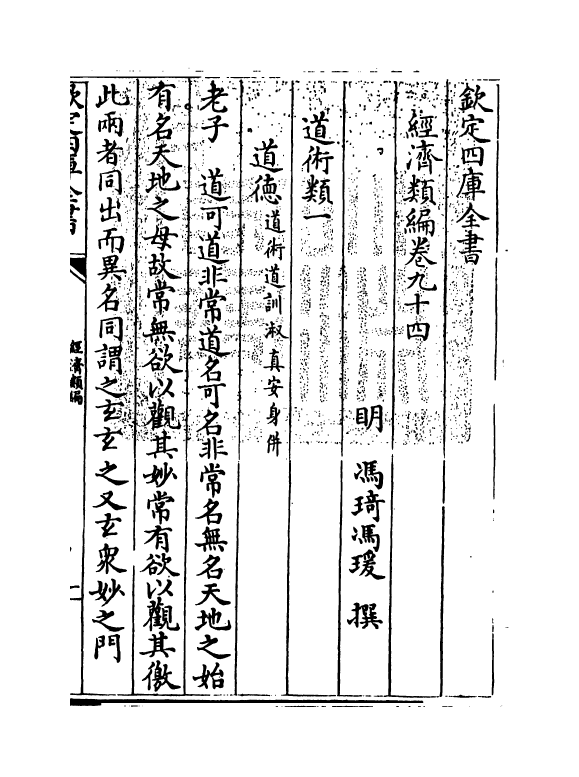 欽定四庫全書
經濟類編卷九十四
明 馮琦馮瑗 撰
道術類一
道徳道術道訓淑真安身附
老子 道可道非常道名可名非常名無名天地之始
有名天地之母故常無欲以觀其妙常有欲以觀其徼
此兩者同出而異名同謂之玄玄之又玄衆妙之門
欽定四庫全書
經濟類編